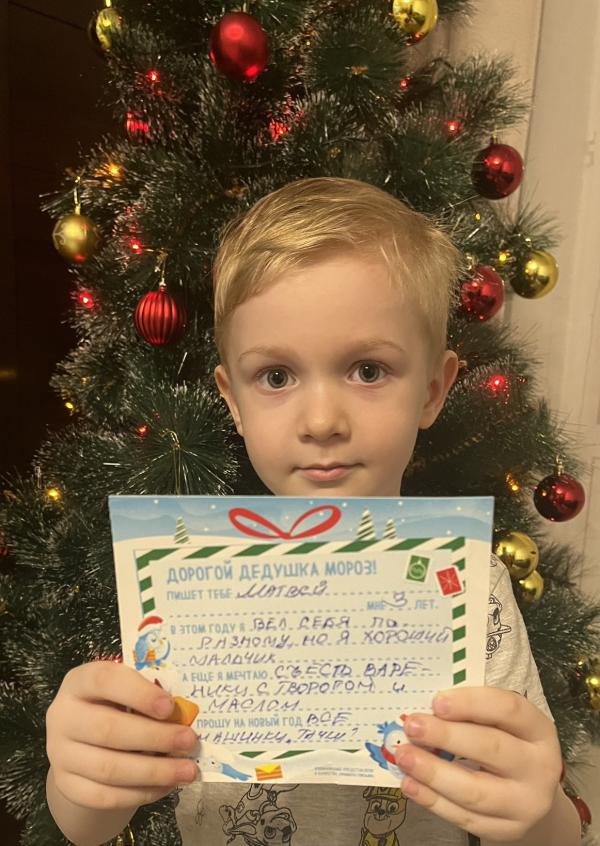 ДОРОГОЙ ДЕДУШКА МОРОЗ!
ПИШЕТ ТЕБЕ МАТВЕЙ
МНЕ 3 ЛЕТ.
В ЭТОМ ГОДУ Я ВЕЛ СЕБЯ ПО-
РАЗНОМУ, НО Я ХОРОШИЙ
МАЛЬЧИК
А ЕЩЕ Я МЕЧТАЮ СЪЕСТЬ ВАРЕ-
НИКИ С ТВОРОГОМ И
МАСЛОМ
ПРОШУ НА НОВЫЙ ГОД ВСЕ
МАШИНКИ, ТАЧКИ